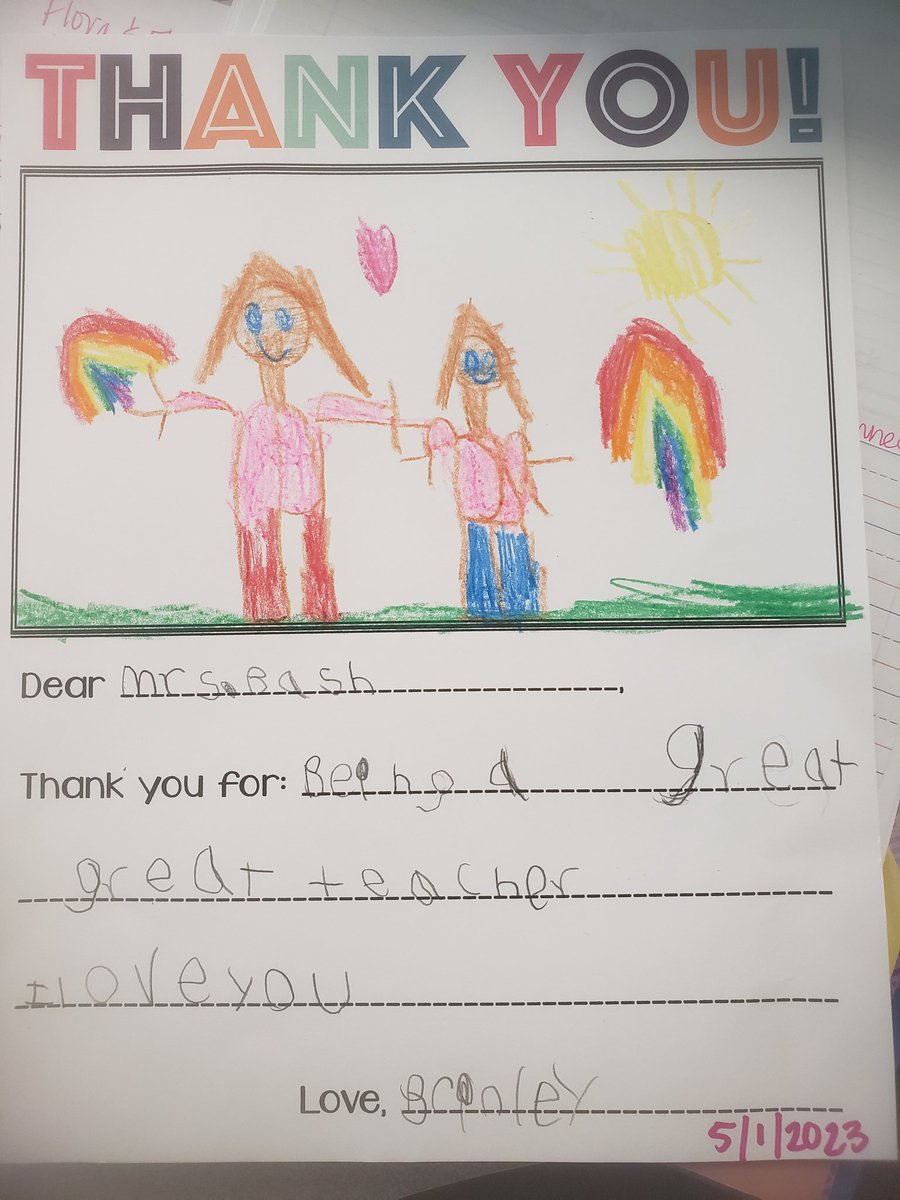 THANK YOU!
Dear Mrs. Bash,
Thank you for: Being a great
great teacher
I love you
Love, Brinley
5/1/2023